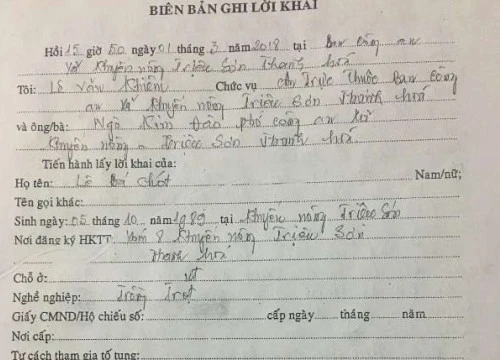 BIÊN BẢN GHI LỜI KHAI
Hồi 15 giờ 50 ngày 01 tháng 3 năm 2018 tại Ban công an
xã Khuyến nông Triệu Sơn Thanh hoá
Tôi: Lê Văn Khiêm Chức vụ CA Trực Thuộc ban công
an xã Khuyến nông Triệu Sơn Thanh hoá
và ông/bà: Ngô Kim Đào phó công an xã
Khuyến nông - Triệu Sơn Thanh hoá
Tiến hành lấy lời khai của:
Họ tên: Lê Bá Chót Nam/nữ;
Tên gọi khác:
Sinh ngày: 05 tháng 10 năm 1989 tại Khuyến nông Triệu Sơn
Nơi đăng ký HKTT: Xóm 8 Khuyến nông Triệu Sơn
Thanh hoá
Chỗ ở:
Nghề nghiệp: Trồng Trọt
Giấy CMND/Hộ chiếu số: cấp ngày tháng năm
Nơi cấp:
Tư cách tham gia tố tụng: